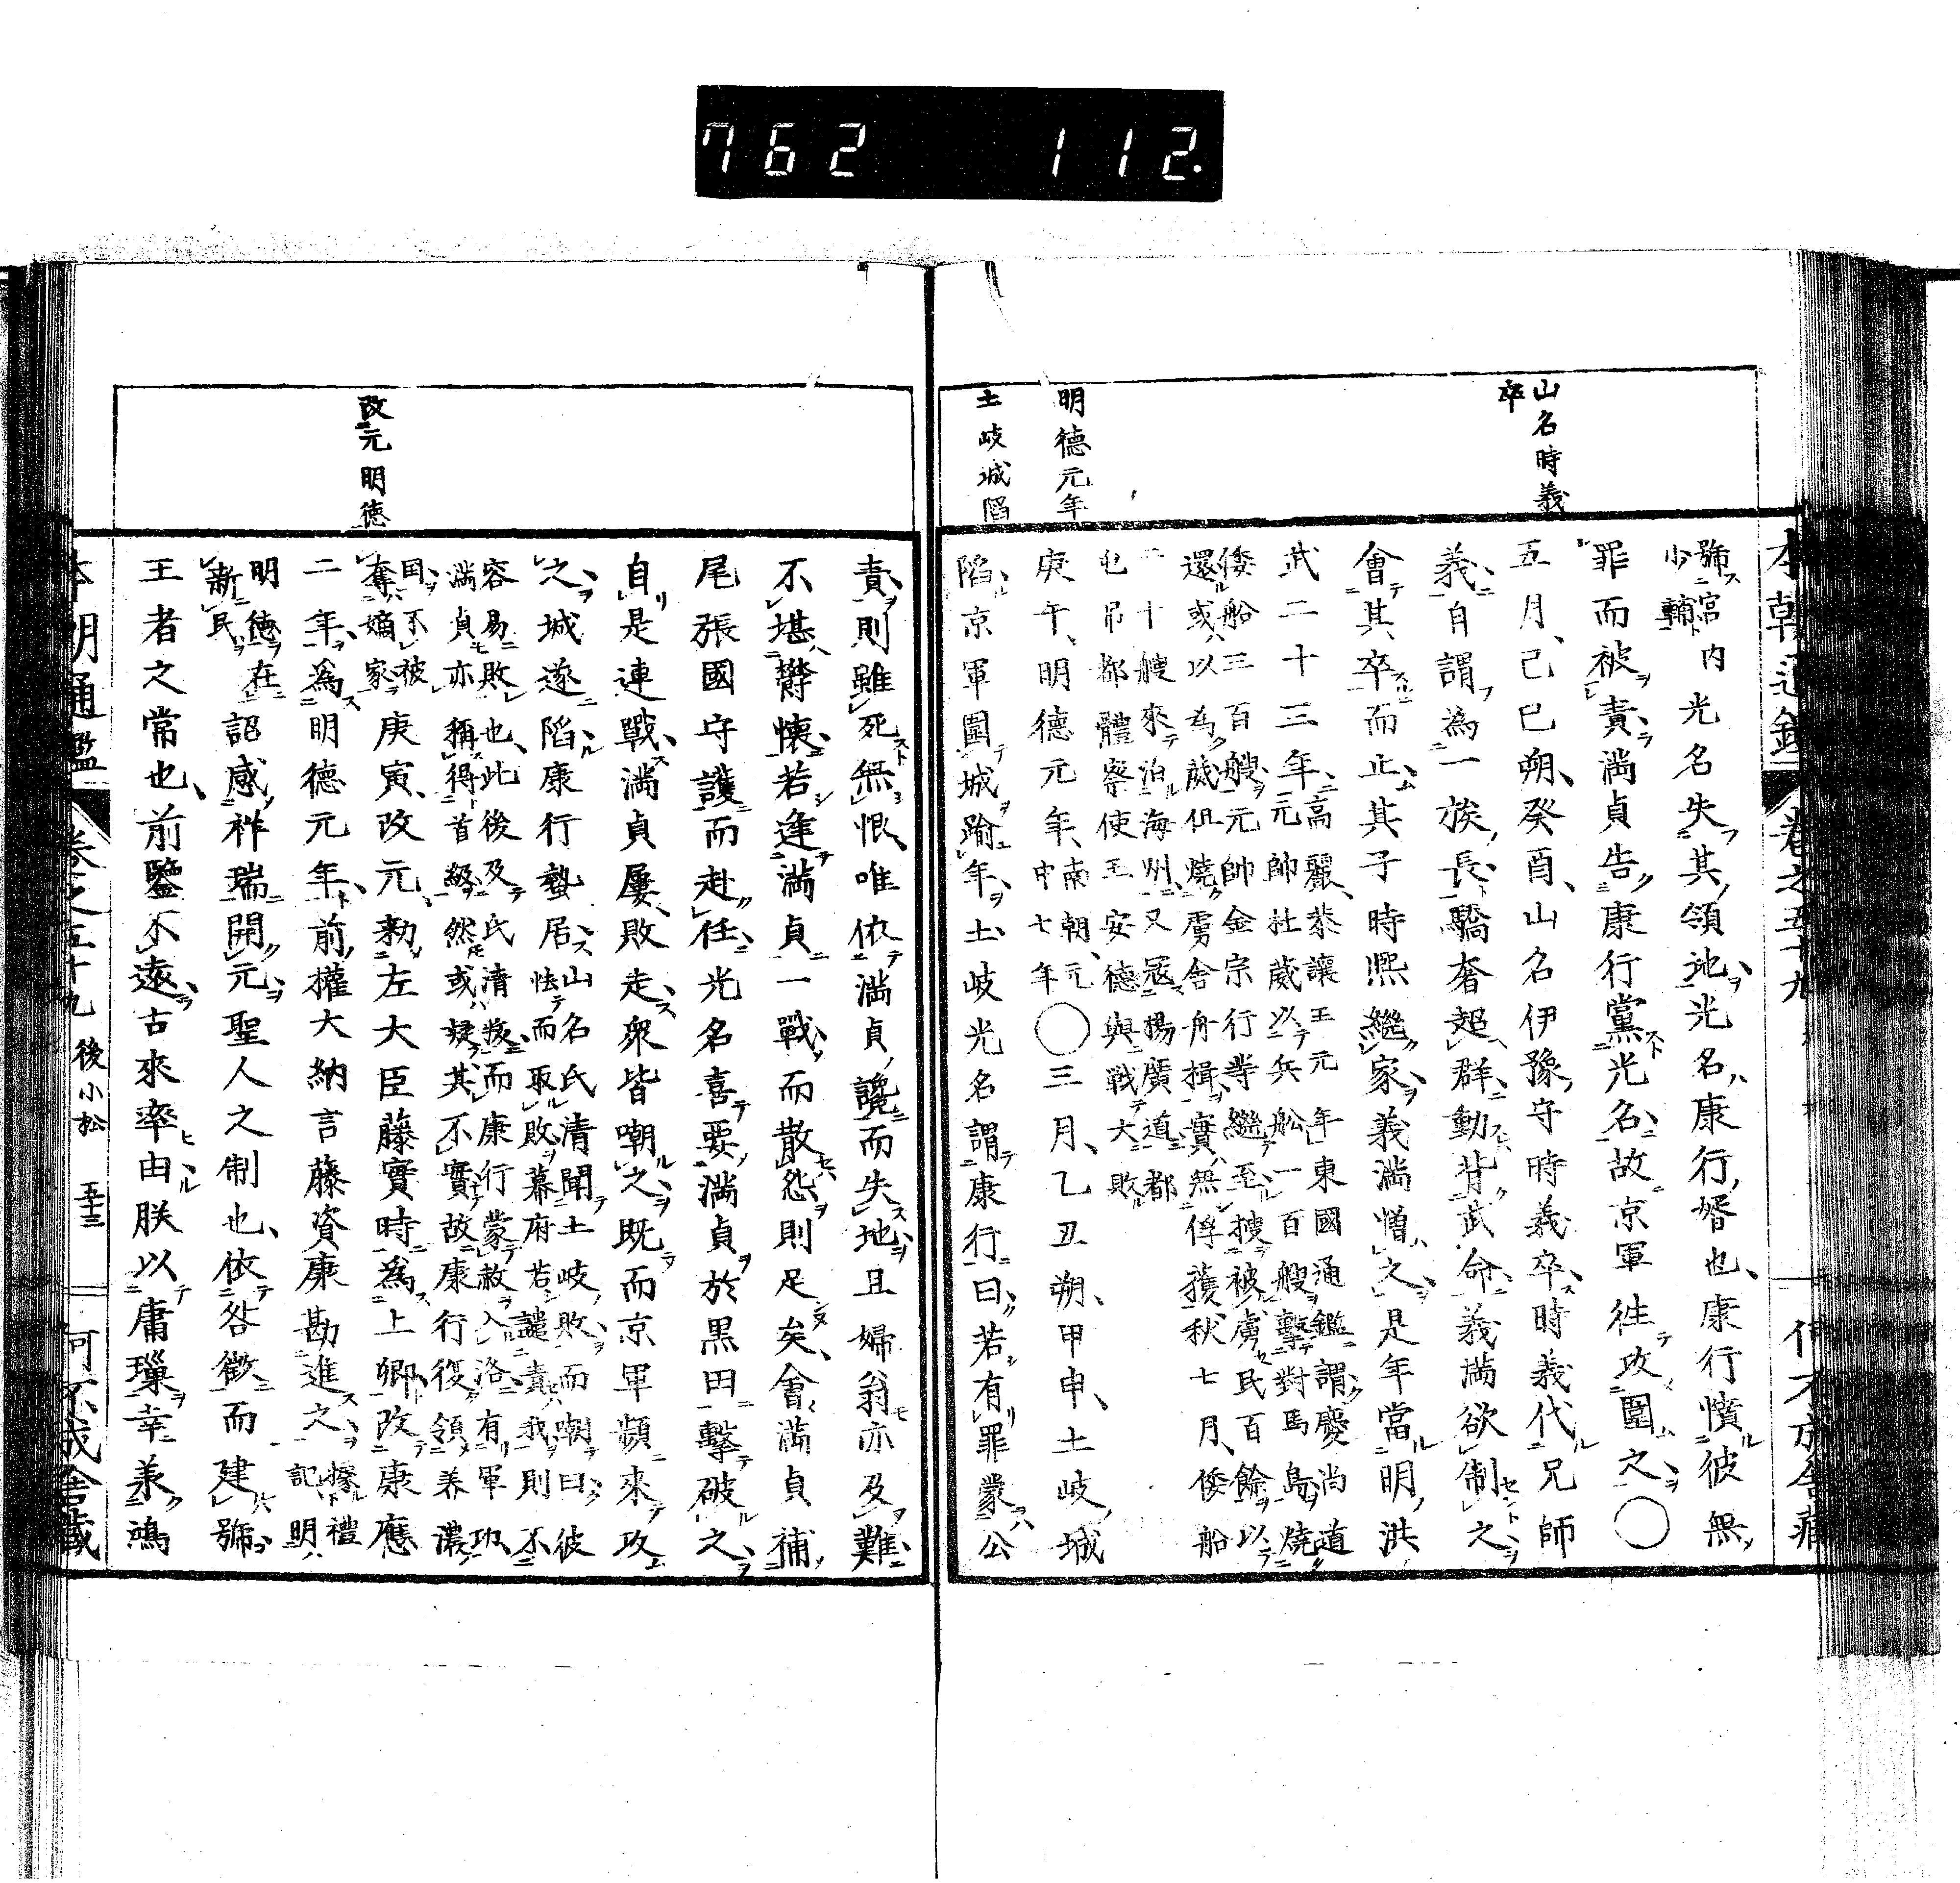 762 112.
山名時義
卒
明德元年
土岐城陷
號宮内
少輔
光名失其領地光名康行婿也康行憤彼無
罪而被責滿貞告康行黨光名故京軍往攻圍之〇
五月己巳朔癸酉山名伊豫守時義卒時義代兄師
義自謂為一族長驕奢超群動背武命義滿欲制之
會其卒而止其子時熙繼家義滿憎之是年當明洪
武二十三年
高麗恭讓王元年東國通鑑謂慶尚道
元帥杜葳以兵船一百艘擊對馬島燒
倭船三百艘元帥金宗行等繼至搜被虜民百餘以
還或以為葳但燒虜舎舟揖實無俘獲秋七月倭船
二十艘來泊海州又冦楊廣道都
屯吊都體察使王安德與戰大敗
庚午明德元年
南朝元
中七年
〇三月乙丑朔甲申土岐城
陷京軍圍城踰年土岐光名謂康行曰若有罪蒙公
本朝通鑑 卷之五十九
何不成舎藏
改元明德
責則雖死無恨唯依滿貞讒而失地且婦翁亦及難
不堪欝懐若逢滿貞一戰而散怨則足矣會滿貞補
尾張國守護而赴任光名喜要滿貞於黒田擊破之
自是連戰滿貞屢敗走衆皆嘲之既而京軍頻來攻
之城遂陷康行蟄居
山名氏清聞土岐敗而嘲曰彼
怯而取敗幕府若譴責我則不
容易敗也此後及氏清叛而康行蒙赦入洛有軍功
滿貞亦稱得首級然或疑其不實故康行復領美濃
国不被
奪嫡家
庚寅改元勅左大臣藤實時為上卿改康應
二年為明德元年前權大納言藤資康勘進之
據禮
記明
明德在
新民
詔感祚瑞開元聖人之制也依咎徴而建號
王者之常也前鑒不遠古來率由朕以庸璅幸羕鴻
本朝通鑑 卷之五十九 後小松 五十三 何不成舎藏